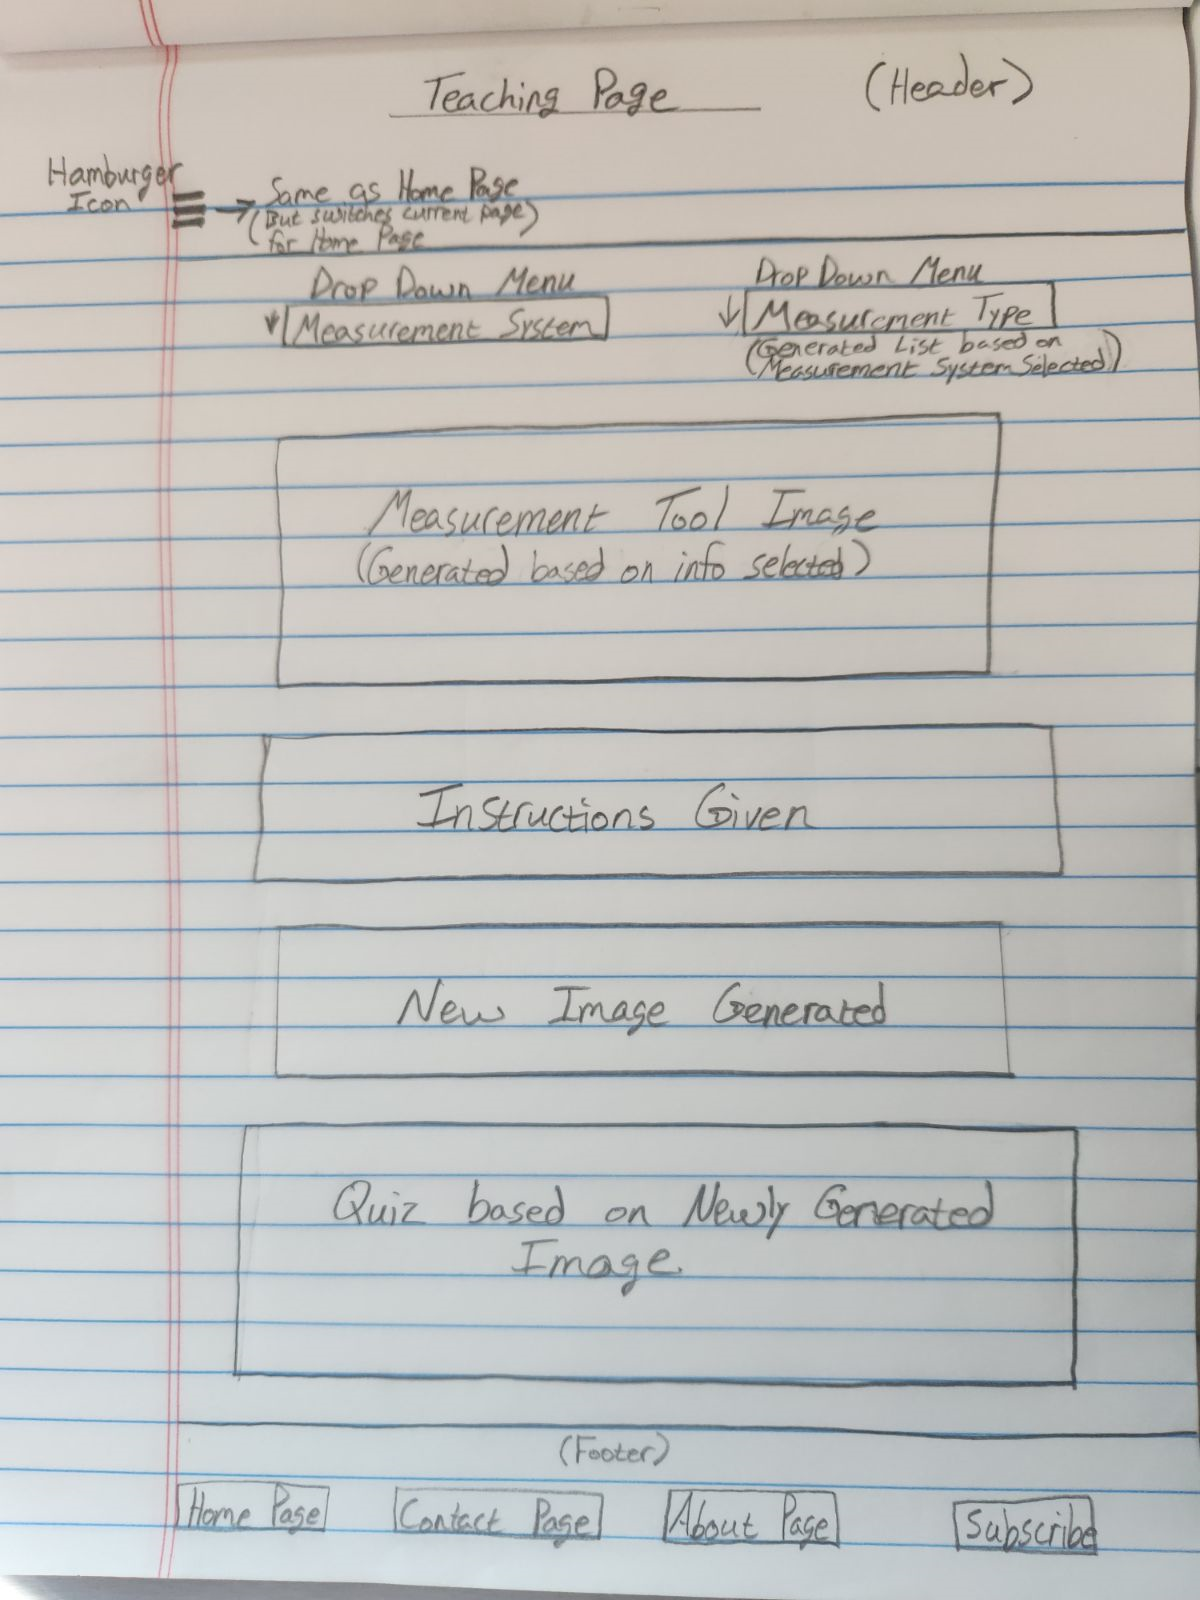 Teaching Page (Header)
Hamburger
Icon
Same as Home Page
(But switches current page)
for Home Page
Drop Down Menu
Measurement System
Drop Down Menu
Measurement Type
(Generated List based on
Measurement System Selected)
Measurement Tool Image
(Generated based on info selected)
Instructions Given
New Image Generated
Quiz based on Newly Generated
Image.
(Footer)
Home Page Contact Page About Page Subscribe